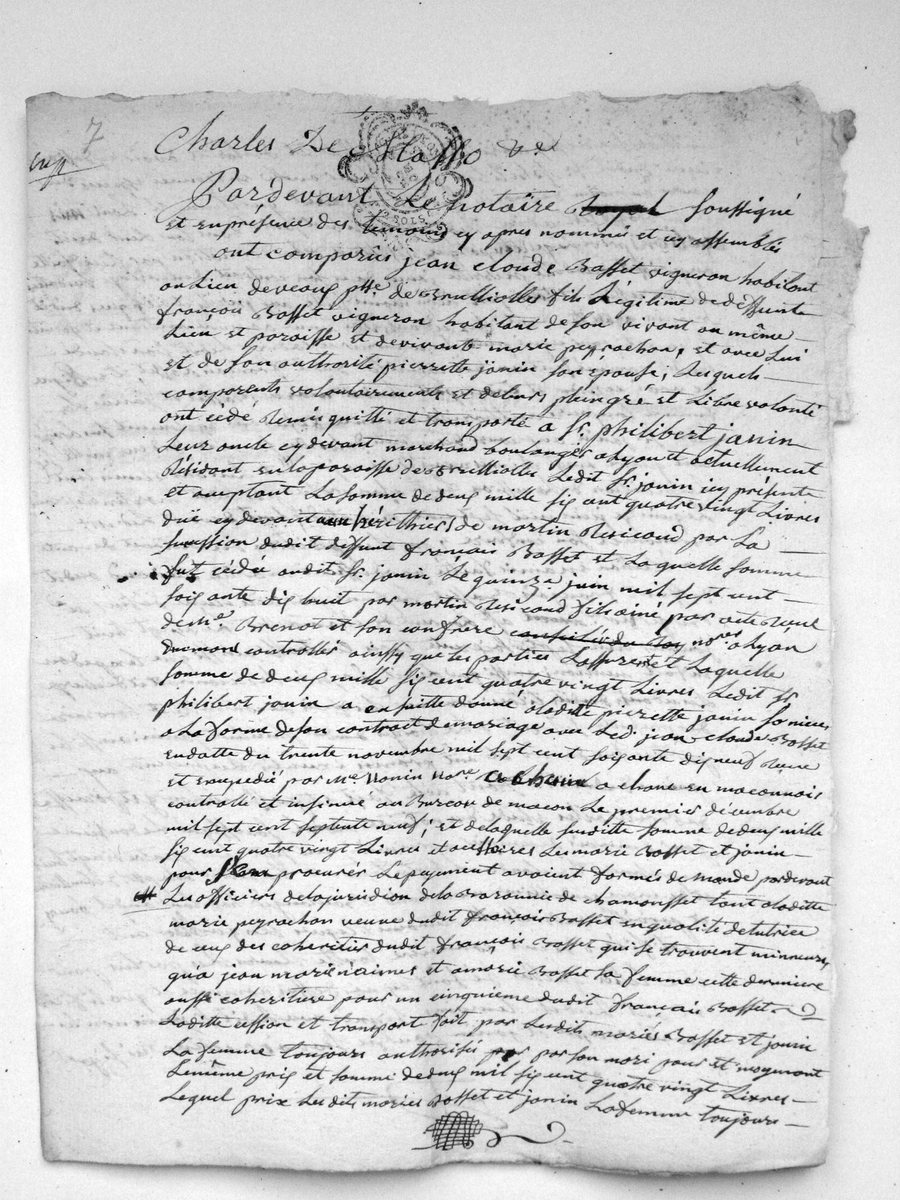 7
Charles De
exp
Pardevant Le Notaire Royal soussigné
et en présence des temoins cy apres nommés et icy assemblés
ont comparus jean claude Basset vigneron habitant
au Lieu de veaux psse. de Brullioles fils Légitime de deffunt
françois Basset vigneron habitant de son vivant au même
Lieu et paroisse et de vivante marie peyrachon, et avec Lui
et de son authorité pierrette janin son épouse, Lesquels
comparents volontairements et de Leurs plein gré et Libre volonté
ont cédé Remis quitté et transporté a Sr. philibert janin
Leur oncle cy devant marchand boulanger a Lyon et actuellement
Résidant sur la paroisse de Brullioles Ledit Sr. janin icy présente
et acceptant La somme de deux mille six cent quatre vingt Livres
düe cy devant aux hérithiers de martin Rivicaud par La
sucession dudit deffunt françois Basset et Laquelle somme
fut cédée audit Sr. janin Le quinze juin mil sept cent
soixante dix huit par martin fils ainé par acte Recu
de Me. Brenot et son confrère nores. a Lyon
controllés ainssy que les parties L'assurent et Laquelle
somme de deux mille six cent quatre vingt Livres Ledit Sr.
philibert janin a ensuitte donné a laditte pierrette janin sa niece
a La forme de son contract de mariage avec Led. jean claude Basset
en datte du trente novembre mil sept cent soixante dix neuf Recu
et expedié par Me. nore. a chane en maconnois
controllé et insinué au Bureau de macon Le premier décembre
mil sept cent septente neuf; et de laquelle susditte somme de deux mille
six cent quatre vingt Livres et accessoires Les marié Basset et janin
pour s'en procurer Le payment avoient formés demande pardevant
Les officiers de la juridicion de la Baronnie de chamousset tant a laditte
marie peyrachon veuve dudit françois Basset en qualité de tutrice
de ceux des coheritiers dudit françois Basset qui se trouvent mineures,
qu'a jean marie l'aimes et a marie Basset sa femme cette derniere
aussi coheritiere pour un cinquieme dudit françois Basset
Laditte cession et transport fait par Lesdits mariés Basset et janin
La femme toujours authorisée par son mari pour et moyenant
Le même prix et somme de deux mil six cent quatre vingt Livres
Lequel prix Lesdits mariés Basset et janin La femme toujours